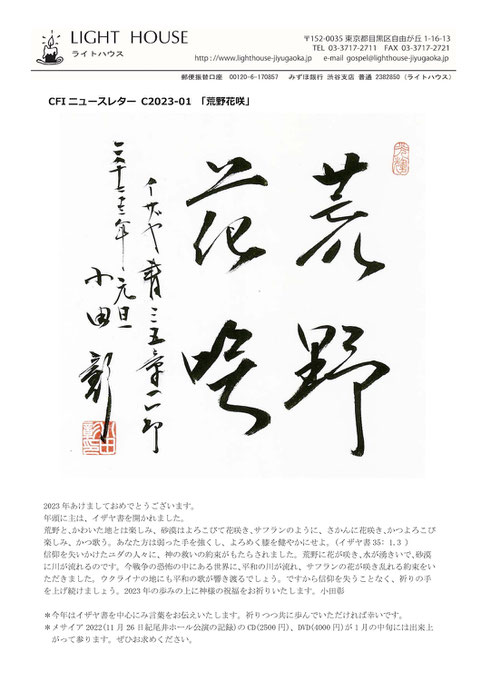 LIGHT HOUSE
ライトハウス
〒152-0035 東京都目黒区自由が丘 1-16-13
TEL 03-3717-2711 FAX 03-3717-2721
http://www.lighthouse-jiyugaoka.jp e-mail gospel@lighthouse-jiyugaoka.jp
郵便振替口座 00120-6-170857 みずほ銀行 渋谷支店 普通 2382850 (ライトハウス)
CFI ニュースレター C2023-01 「荒野花咲」
荒野
花咲
イザヤ書三五章一節
二〇二三年元旦
小田彰
2023 年あけましておめでとうございます。
年頭に主は、イザヤ書を開かれました。
荒野と、かわいた地とは楽しみ、砂漠はよろこびて花咲き、サフランのように、さかんに花咲き、かつよろこび
楽しみ、かつ歌う。あなた方は弱った手を強くし、よろめく膝を健やかにせよ。(イザヤ書 35: 1.3 )
信仰を失いかけたユダの人々に、神の救いの約束がもたらされました。荒野に花が咲き、水が湧きいで、砂漠
に川が流れるのです。今戦争の恐怖の中にある世界に、平和の川が流れ、サフランの花が咲き乱れる約束をい
ただきました。ウクライナの地にも平和の歌が響き渡るでしょう。ですから信仰を失うことなく、祈りの手
を上げ続けましょう。2023 年の歩みの上に神様の祝福をお祈りいたします。小田彰
＊今年はイザヤ書を中心にみ言葉をお伝えいたします。祈りつつ共に歩んでいただければ幸いです。
＊メサイア 2022(11 月 26 日紀尾井ホール公演の記録)の CD(2500 円)、DVD(4000 円)が 1 月の中旬には出来上
がって参ります。ぜひお求めください。